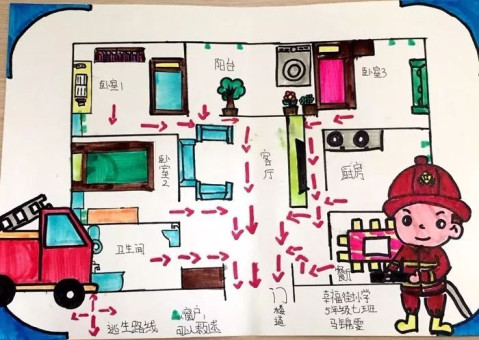 卧室1
阳台
卧室3
卧室2
客厅
厨房
卫生间
餐厅
门
楼道
窗户,
可以
逃生路线
小学
5年级七班